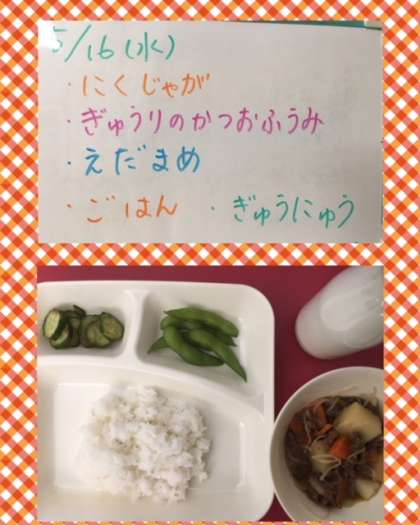 5/16(水)
・にくじゃが
・ぎゅうりのかつおふうみ
・えだまめ
・ごはん ・ぎゅうにゅう